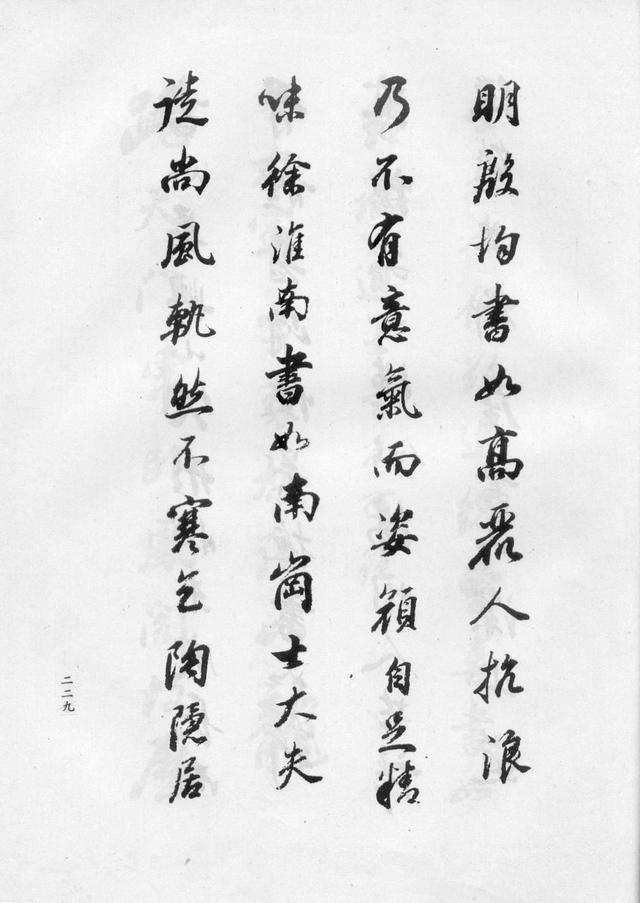 明殷均書如高麗人抗浪
乃不有意氣而姿顏自足精
味徐淮南書如南崗士大夫
徒尚風軌然不寒乞陶隱居
二二九